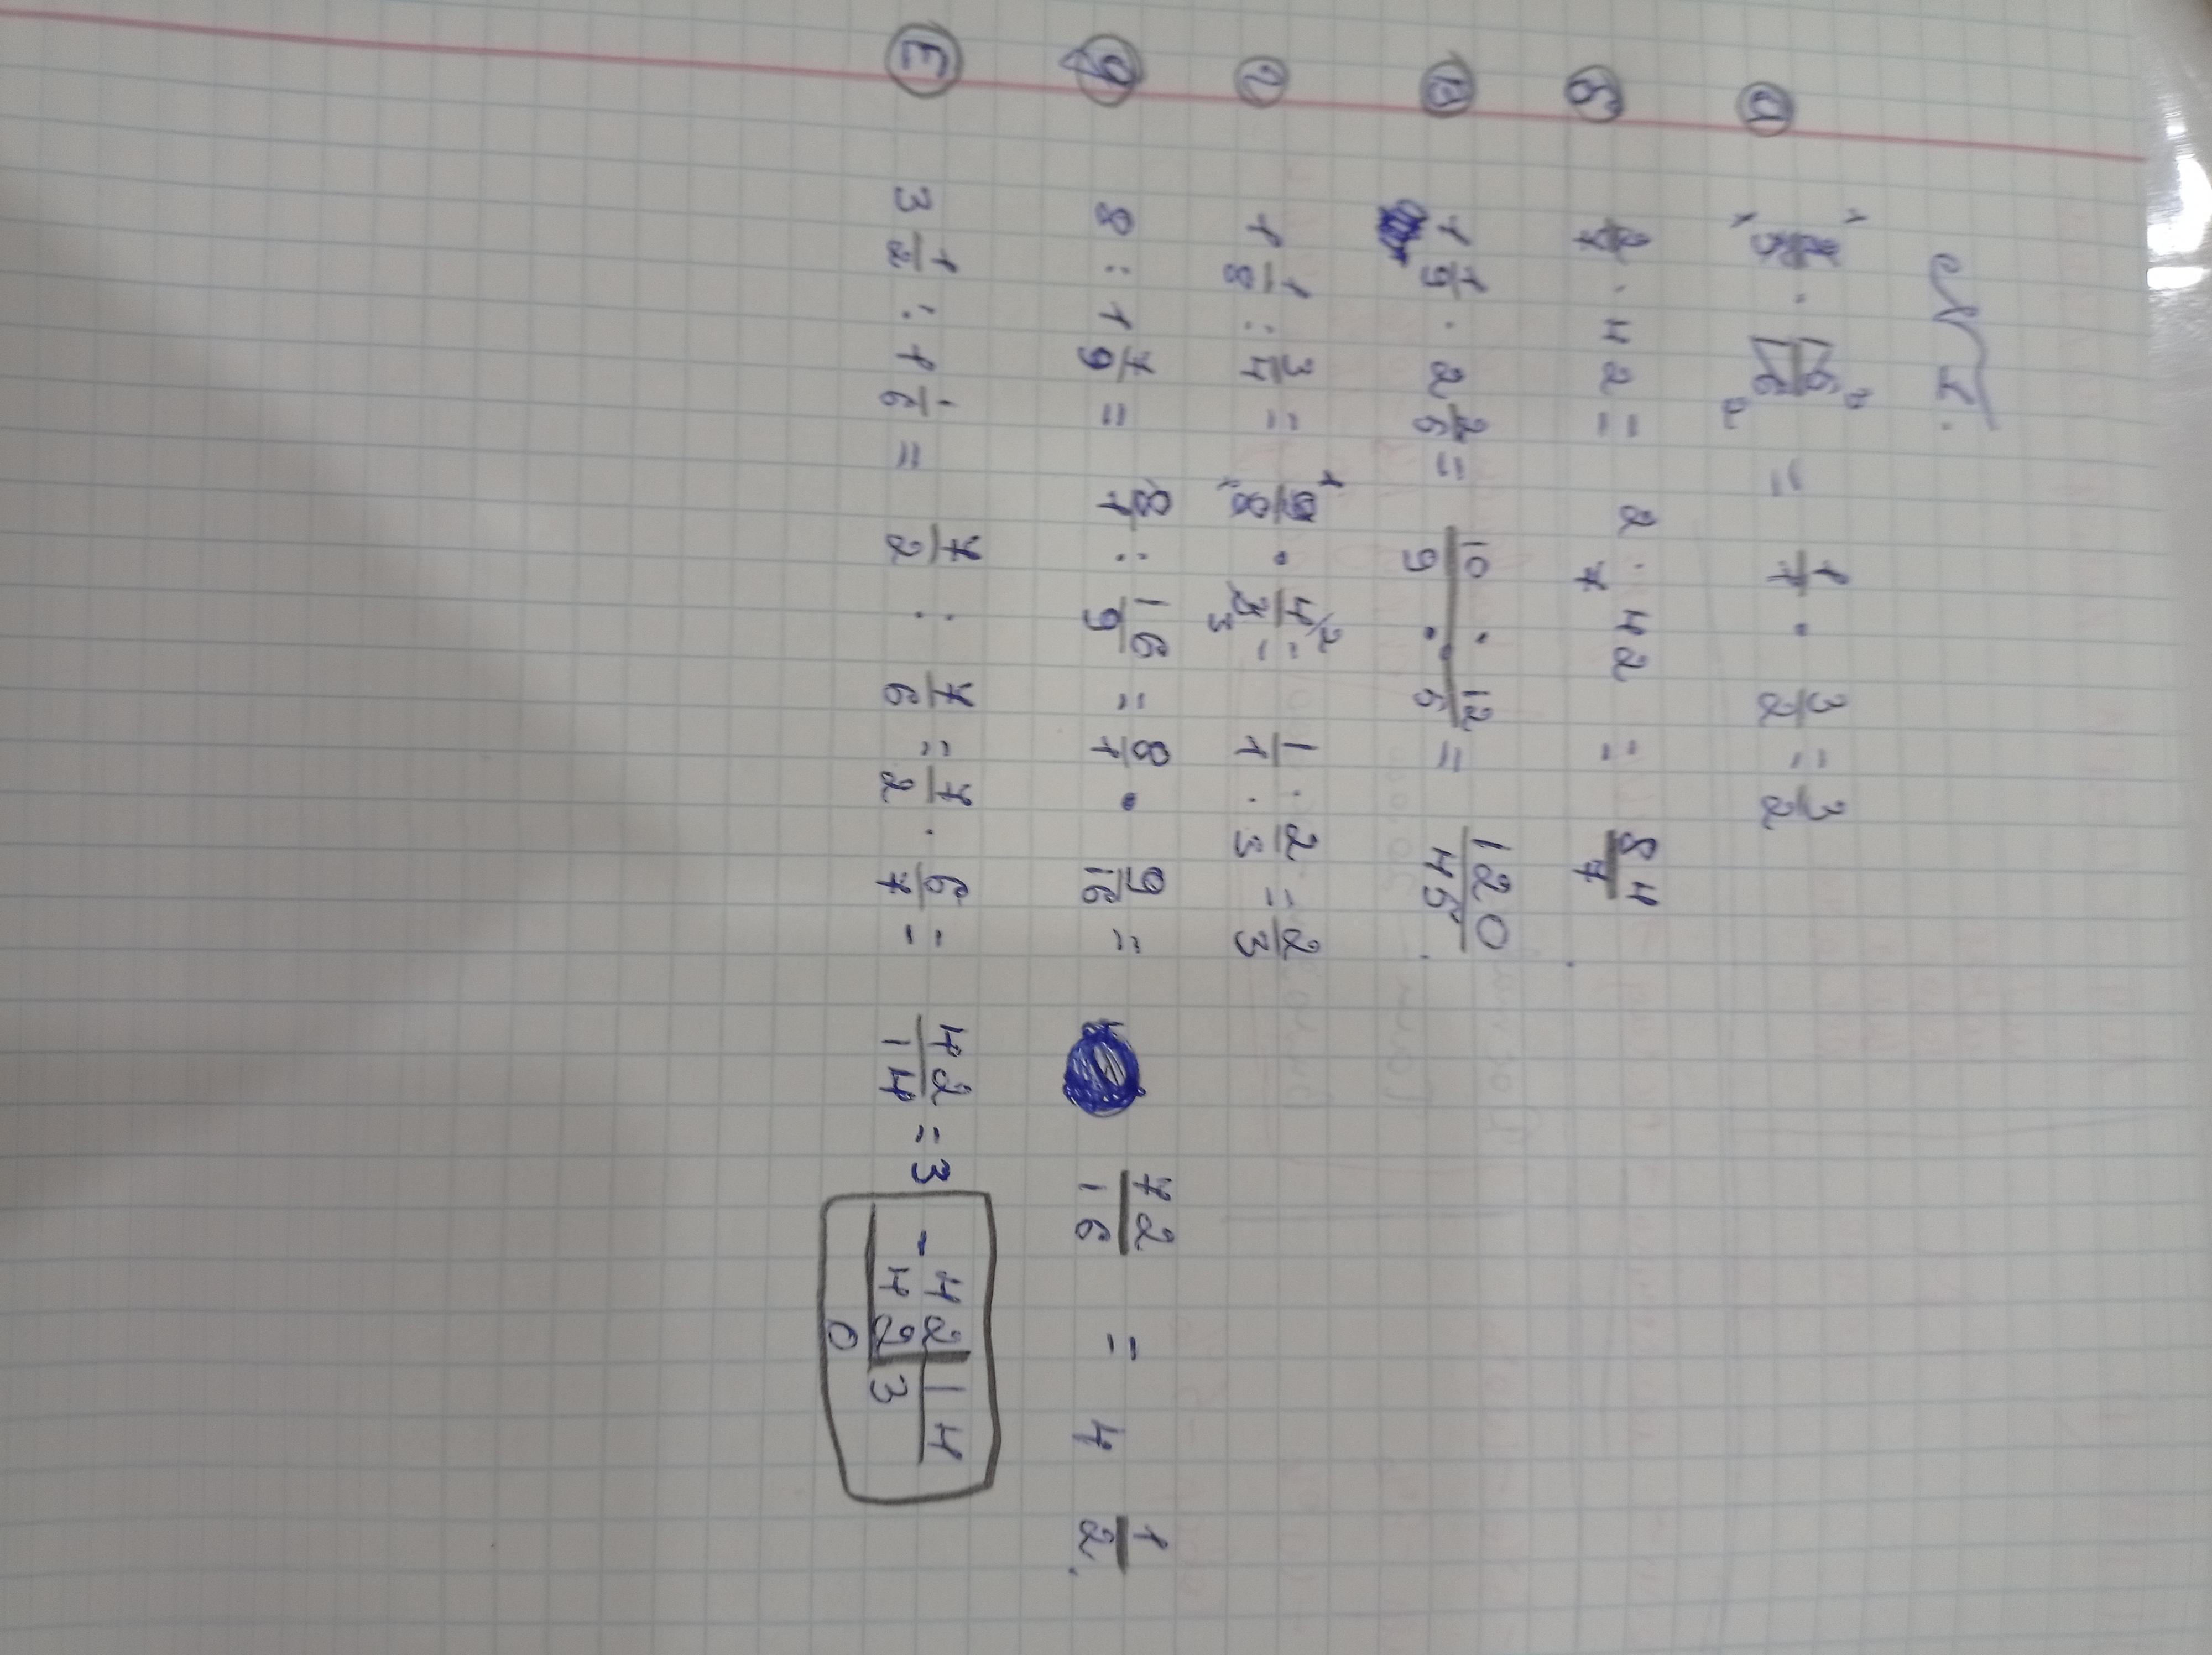 № 1.
а) · = 1/1 · 3/2 = 3/2
б) 2/7 · 42 = 2 · 42 / 7 = 84/7
в) 1 1/9 · 2 2/5 = 10 · 12 / 9 · 5 = 120/45
г) 1 1/8 : 3/4 = 9/8 · 4/3 = 1/1 · 2/3 = 2/3
д) 8 : 1 7/9 = 8/1 : 16/9 = 8/1 · 9/16 = 72/16 = 4 1/2.
Е) 3 1/2 : 1 1/6 = 7/2 : 7/6 = 7/2 · 6/7 = 42/14 = 3
- 42 | 14
42 | 3
0